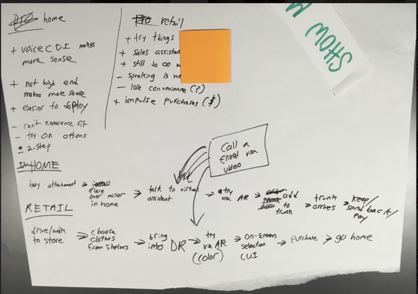 home
+ voice CUI makes
more sense
+ not high end
makes more sense
+ easier to deploy
- can't experience fit
- try on options
2-step
retail
+ try things
+ sales assistant
+ still to
- speaking is
- lose convenience (?)
+ impulse purchases ($)
SHOW
M
Call a
friend via
video
IN-HOME
buy attachment → place
over mirror
in home → talk to virtual
assistant → try via AR → add
to
trunk → trunk
arrives → keep/
send back/
pay
RETAIL
drive/walk
to store → choose
clothes
from shelves → bring
into DR → try
via AR
(color) → on-screen
selection
CUI → purchase → go home